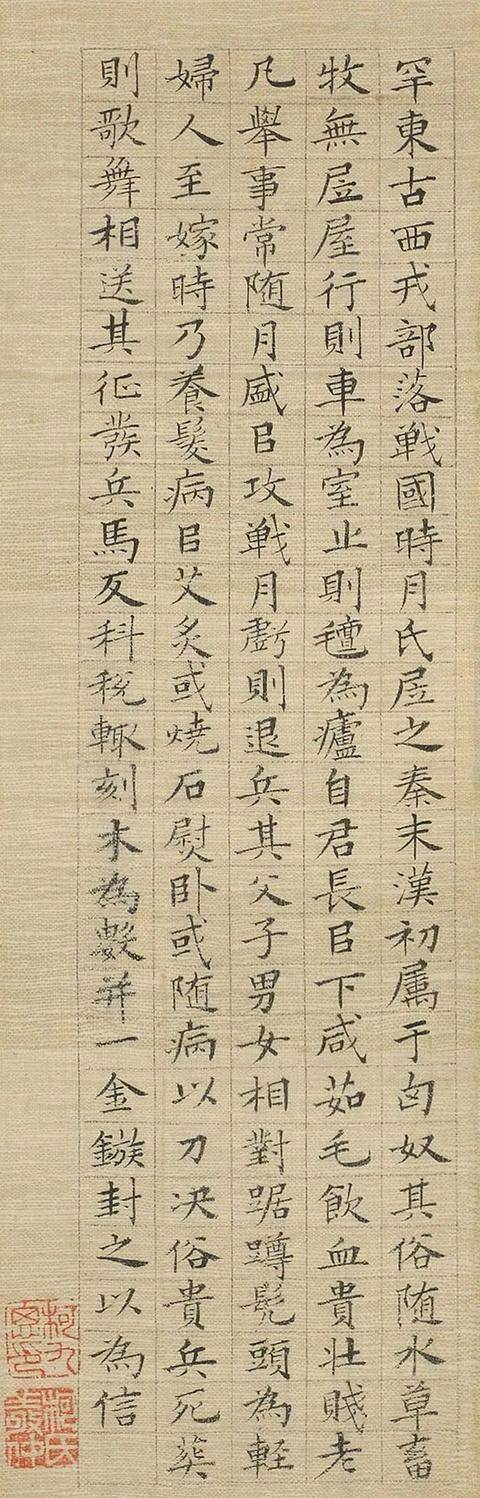 罕東古西戎部落戰國時月氏居之秦末漢初屬于匈奴其俗随水草畜
牧無居屋行則車為室止則氊為廬自君長㠯下咸茹毛飲血貴壯賤老
凡舉事常随月盛㠯攻戰月虧則退兵其父子男女相對踞蹲髡頭為軽
婦人至嫁時乃養髮病㠯艾炙或燒石熨卧或随病以刀决俗貴兵死葬
則歌舞相送其征發兵馬及科税輙刻木為數并一金鏃封之以為信
柯九思印
柯氏敬仲